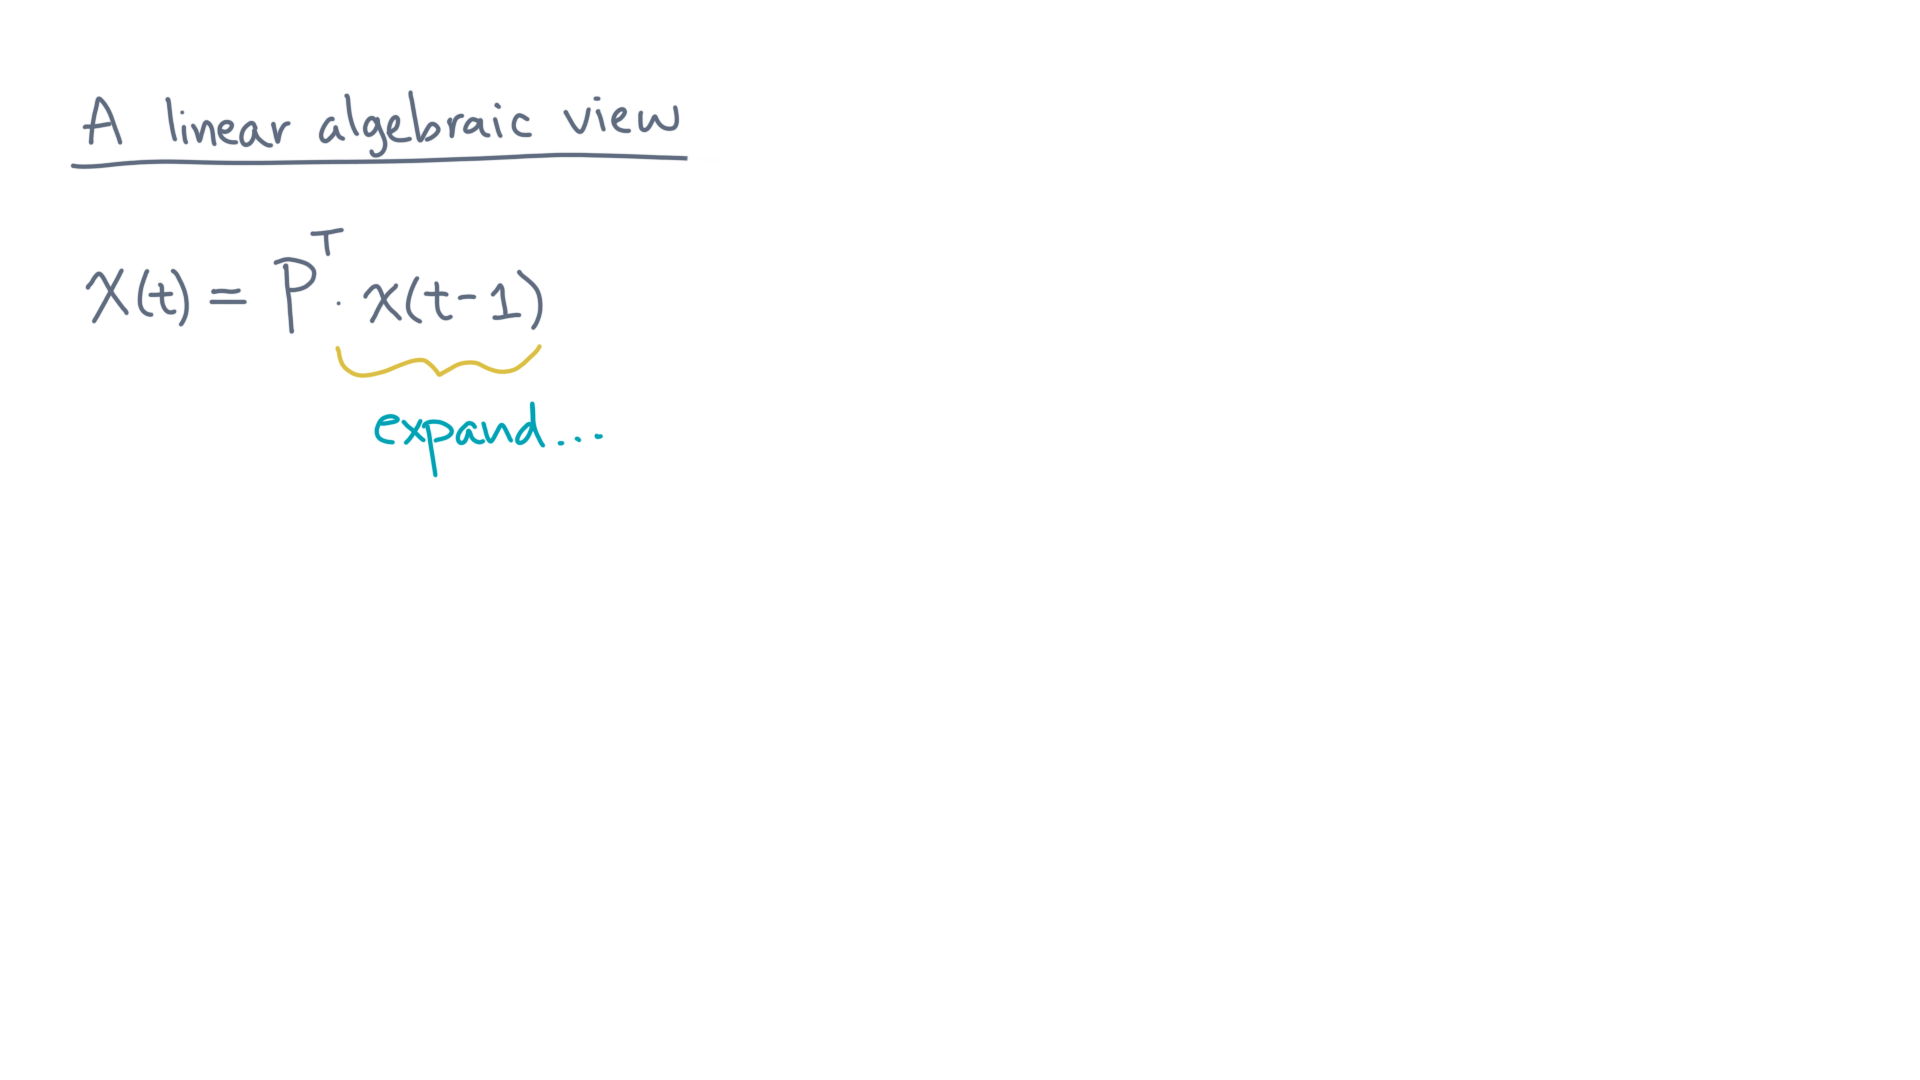 A linear algebraic view
X(t) = P^T · x(t-1)
expand...